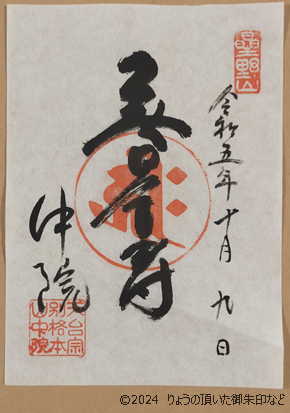 星野山
令和五年十月九日
無量寿
中院
天台宗
別格本
山中院
©2024 りょうの頂いた御朱印など